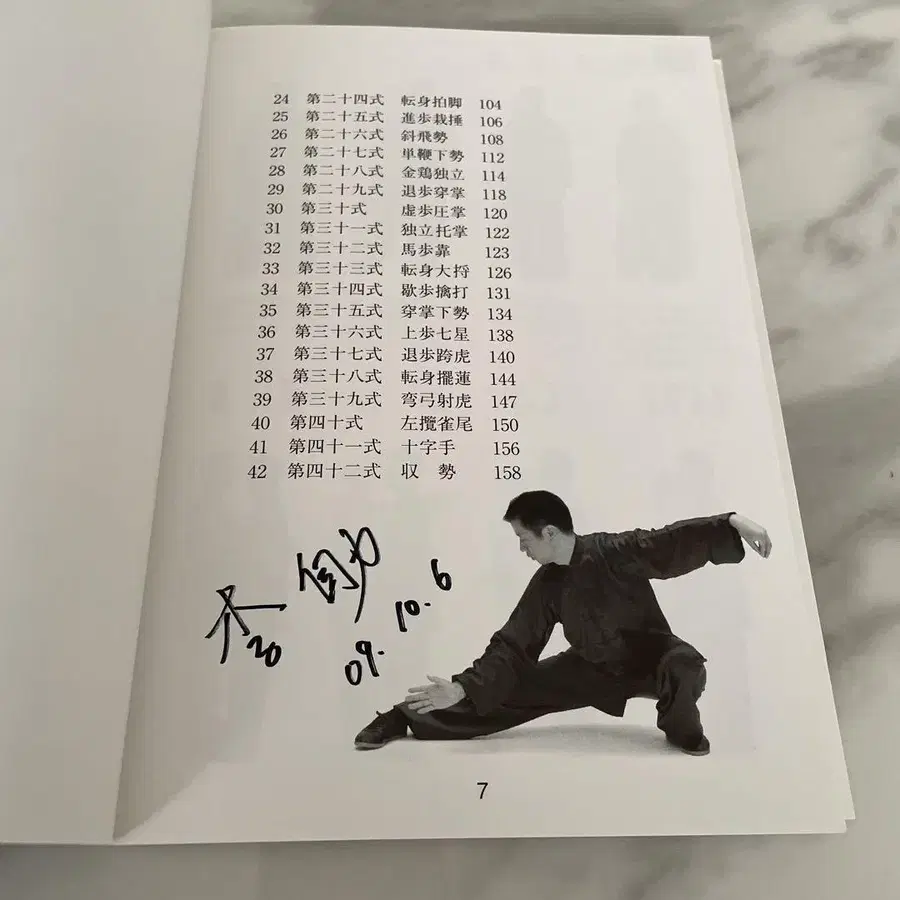 24 第二十四式 転身拍脚 104
25 第二十五式 進歩栽捶 106
26 第二十六式 斜飛勢 108
27 第二十七式 単鞭下勢 112
28 第二十八式 金鶏独立 114
29 第二十九式 退歩穿掌 118
30 第三十式 虚歩圧掌 120
31 第三十一式 独立托掌 122
32 第三十二式 馬歩靠 123
33 第三十三式 転身大捋 126
34 第三十四式 歇歩擒打 131
35 第三十五式 穿掌下勢 134
36 第三十六式 上歩七星 138
37 第三十七式 退歩跨虎 140
38 第三十八式 転身擺蓮 144
39 第三十九式 弯弓射虎 147
40 第四十式 左攬雀尾 150
41 第四十一式 十字手 156
42 第四十二式 収 勢 158
09. 10. 6
7